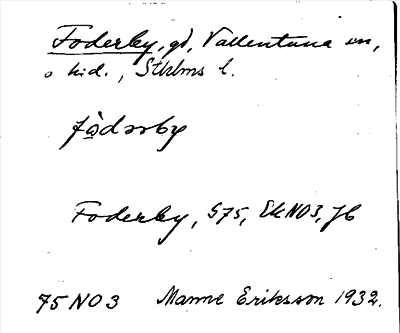 Foderby, gd, Vallentuna sn,
o hd., Sthlms l.
fòdərby
Foderby, G75, EkNO3, JB
75 NO 3 Manne Eriksson 1932.